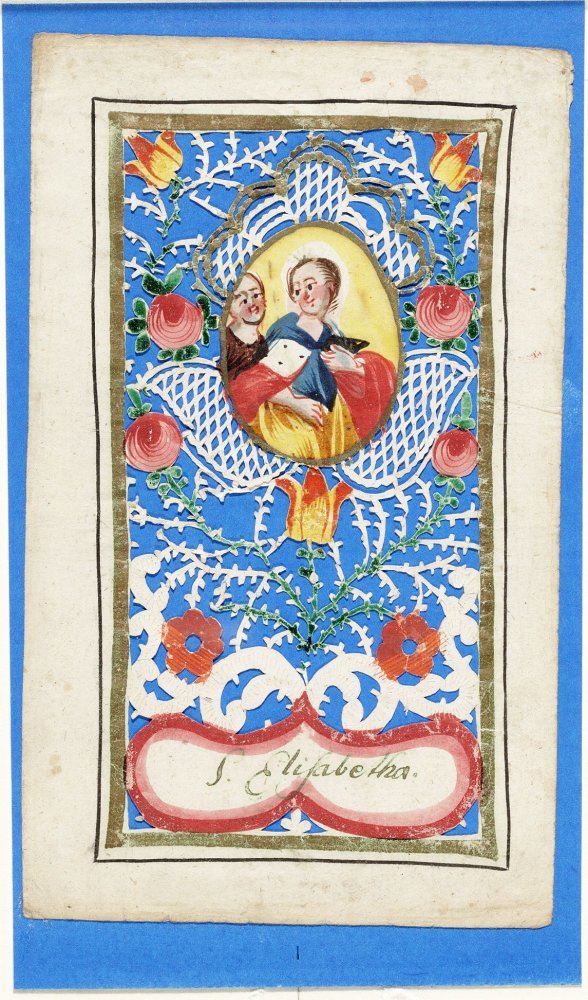 S. Elisabetha.